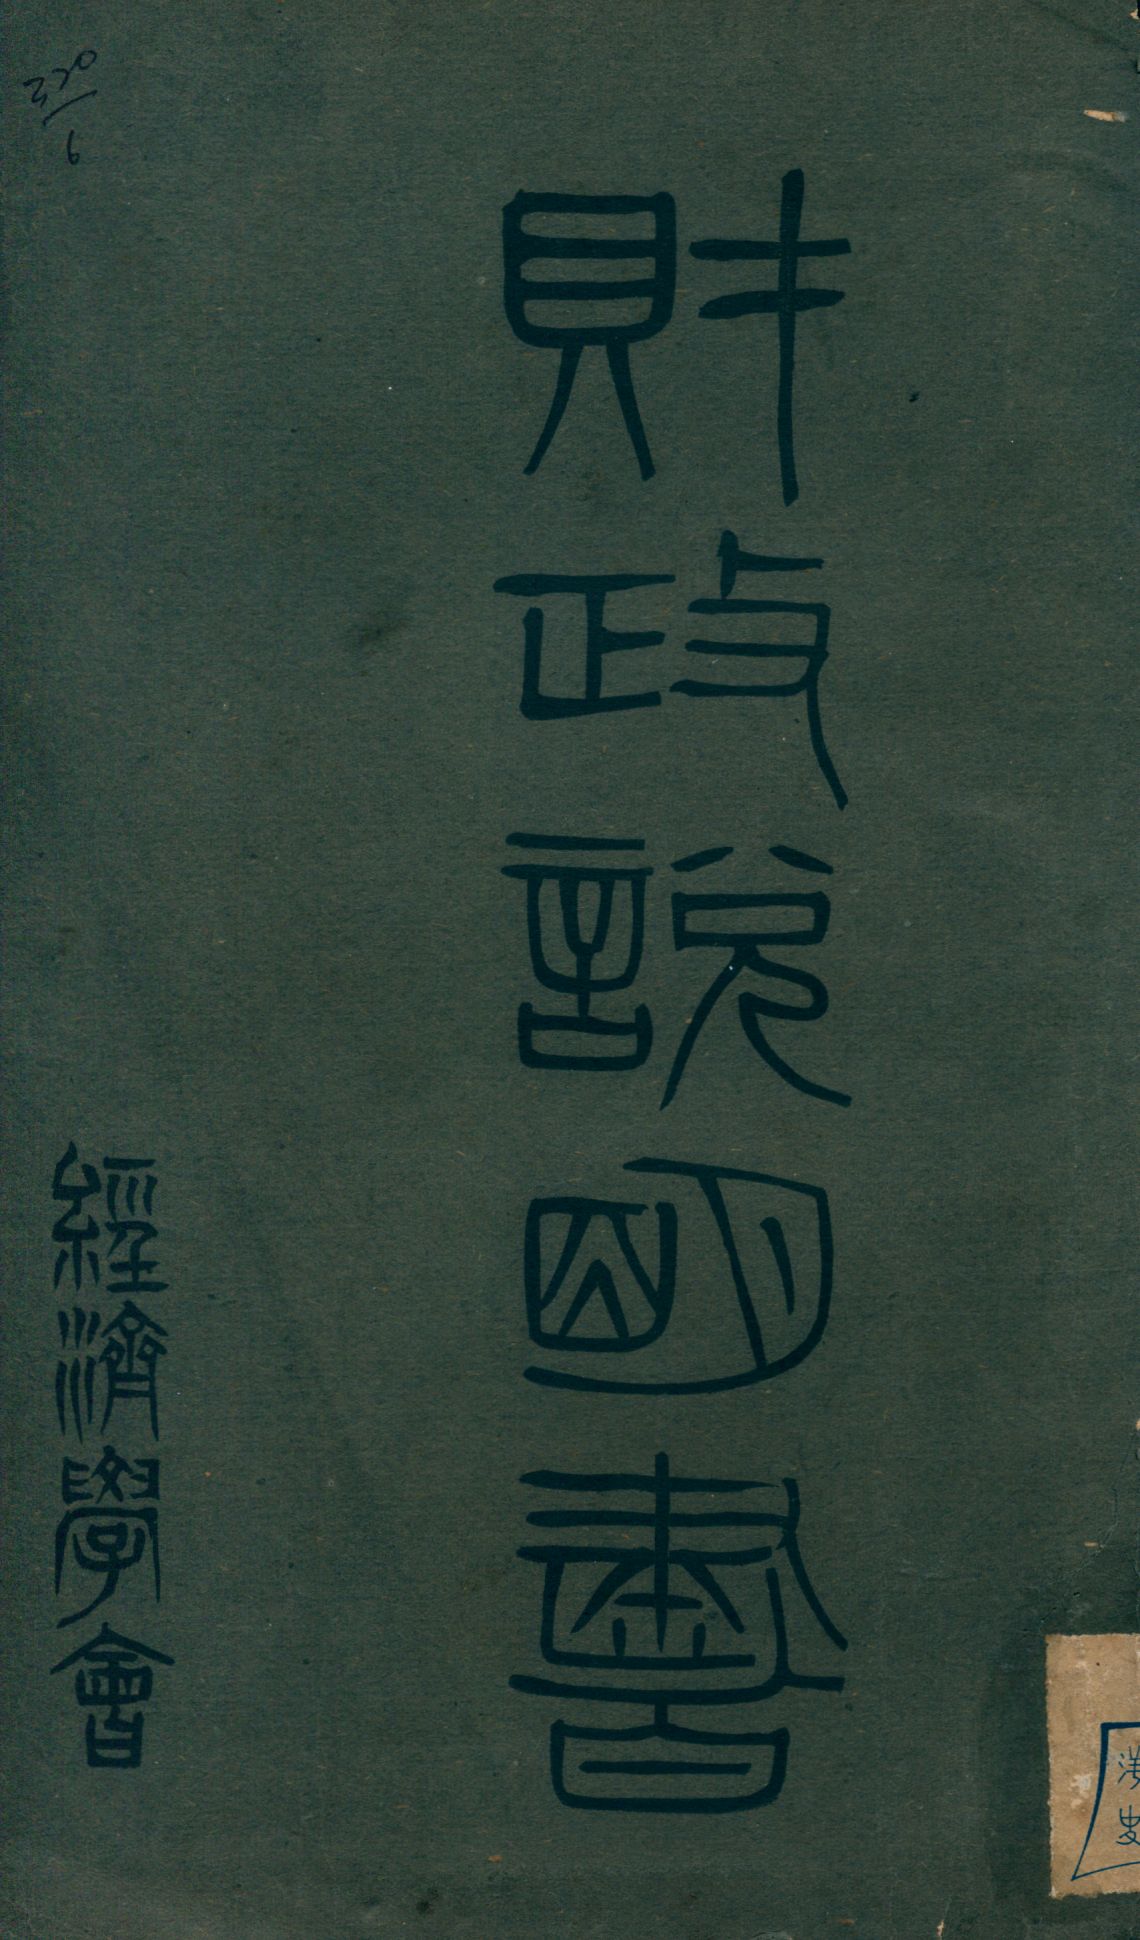 財政說明書
經濟學會
330
6